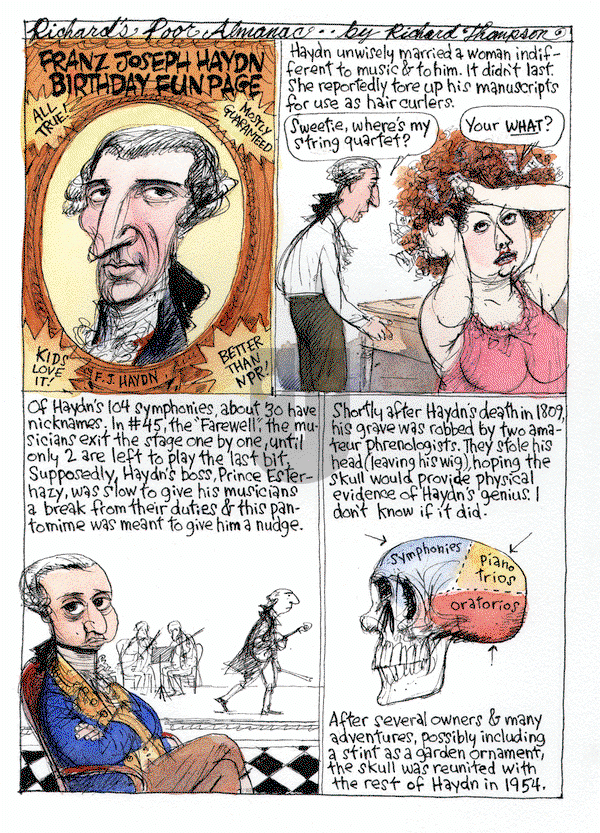 Richard's Poor Almanac .. by Richard Thompson
FRANZ JOSEPH HAYDN
BIRTHDAY FUN PAGE
ALL
TRUE!
MOSTLY
GUARANTEED
KIDS
LOVE
IT!
F.J. HAYDN
BETTER
THAN
NPR!
Haydn unwisely married a woman indif-
ferent to music & to him. It didn't last.
She reportedly tore up his manuscripts
for use as hair curlers.
Sweetie, where's my
string quartet?
Your WHAT?
Of Haydn's 104 symphonies, about 30 have
nicknames. In #45, the "Farewell", the mu-
sicians exit the stage one by one, until
only 2 are left to play the last bit.
Supposedly, Haydn's boss, Prince Ester-
hazy, was slow to give his musicians
a break from their duties & this pan-
tomime was meant to give him a nudge.
Shortly after Haydn's death in 1809,
his grave was robbed by two ama-
teur phrenologists. They stole his
head (leaving his wig), hoping the
skull would provide physical
evidence of Haydn's genius. I
don't know if it did.
Symphonies
Piano
trios
Oratorios
After several owners & many
adventures, possibly including
a stint as a garden ornament,
the skull was reunited with
the rest of Haydn in 1954.